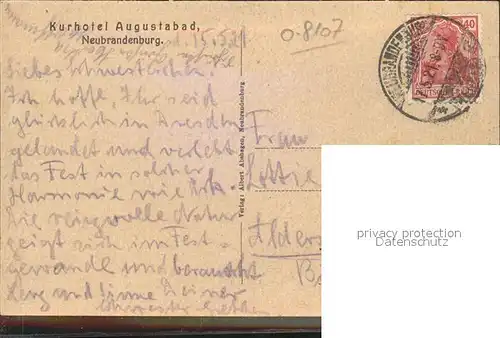 Kurhotel Augustabad,
Neubrandenburg.
d. 15.5.21
O-8107
40
NEUBRANDENBURG
Liebes Schwesterchen.
Ich hoffe, Ihr seid
glücklich in Dresden
gelandet und verlebt
das Fest in solcher
Harmonie wie
Die reizvolle Natur
zeigt sich im Fest-
gewande und berauscht
Herz und Sinne Deiner
Schwester
Verlag: Albert Alshagen, Neubrandenburg
Frau
Lotte
privacy protection
Datenschutz